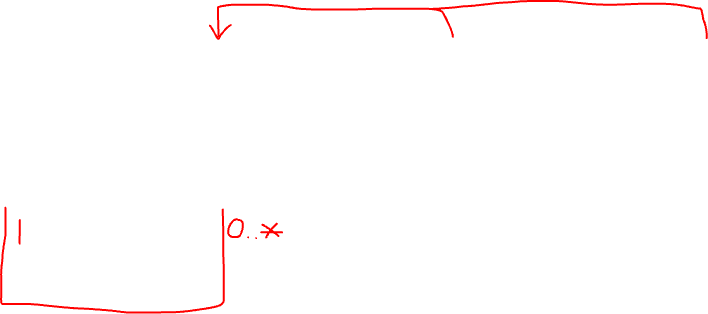 1 0..*